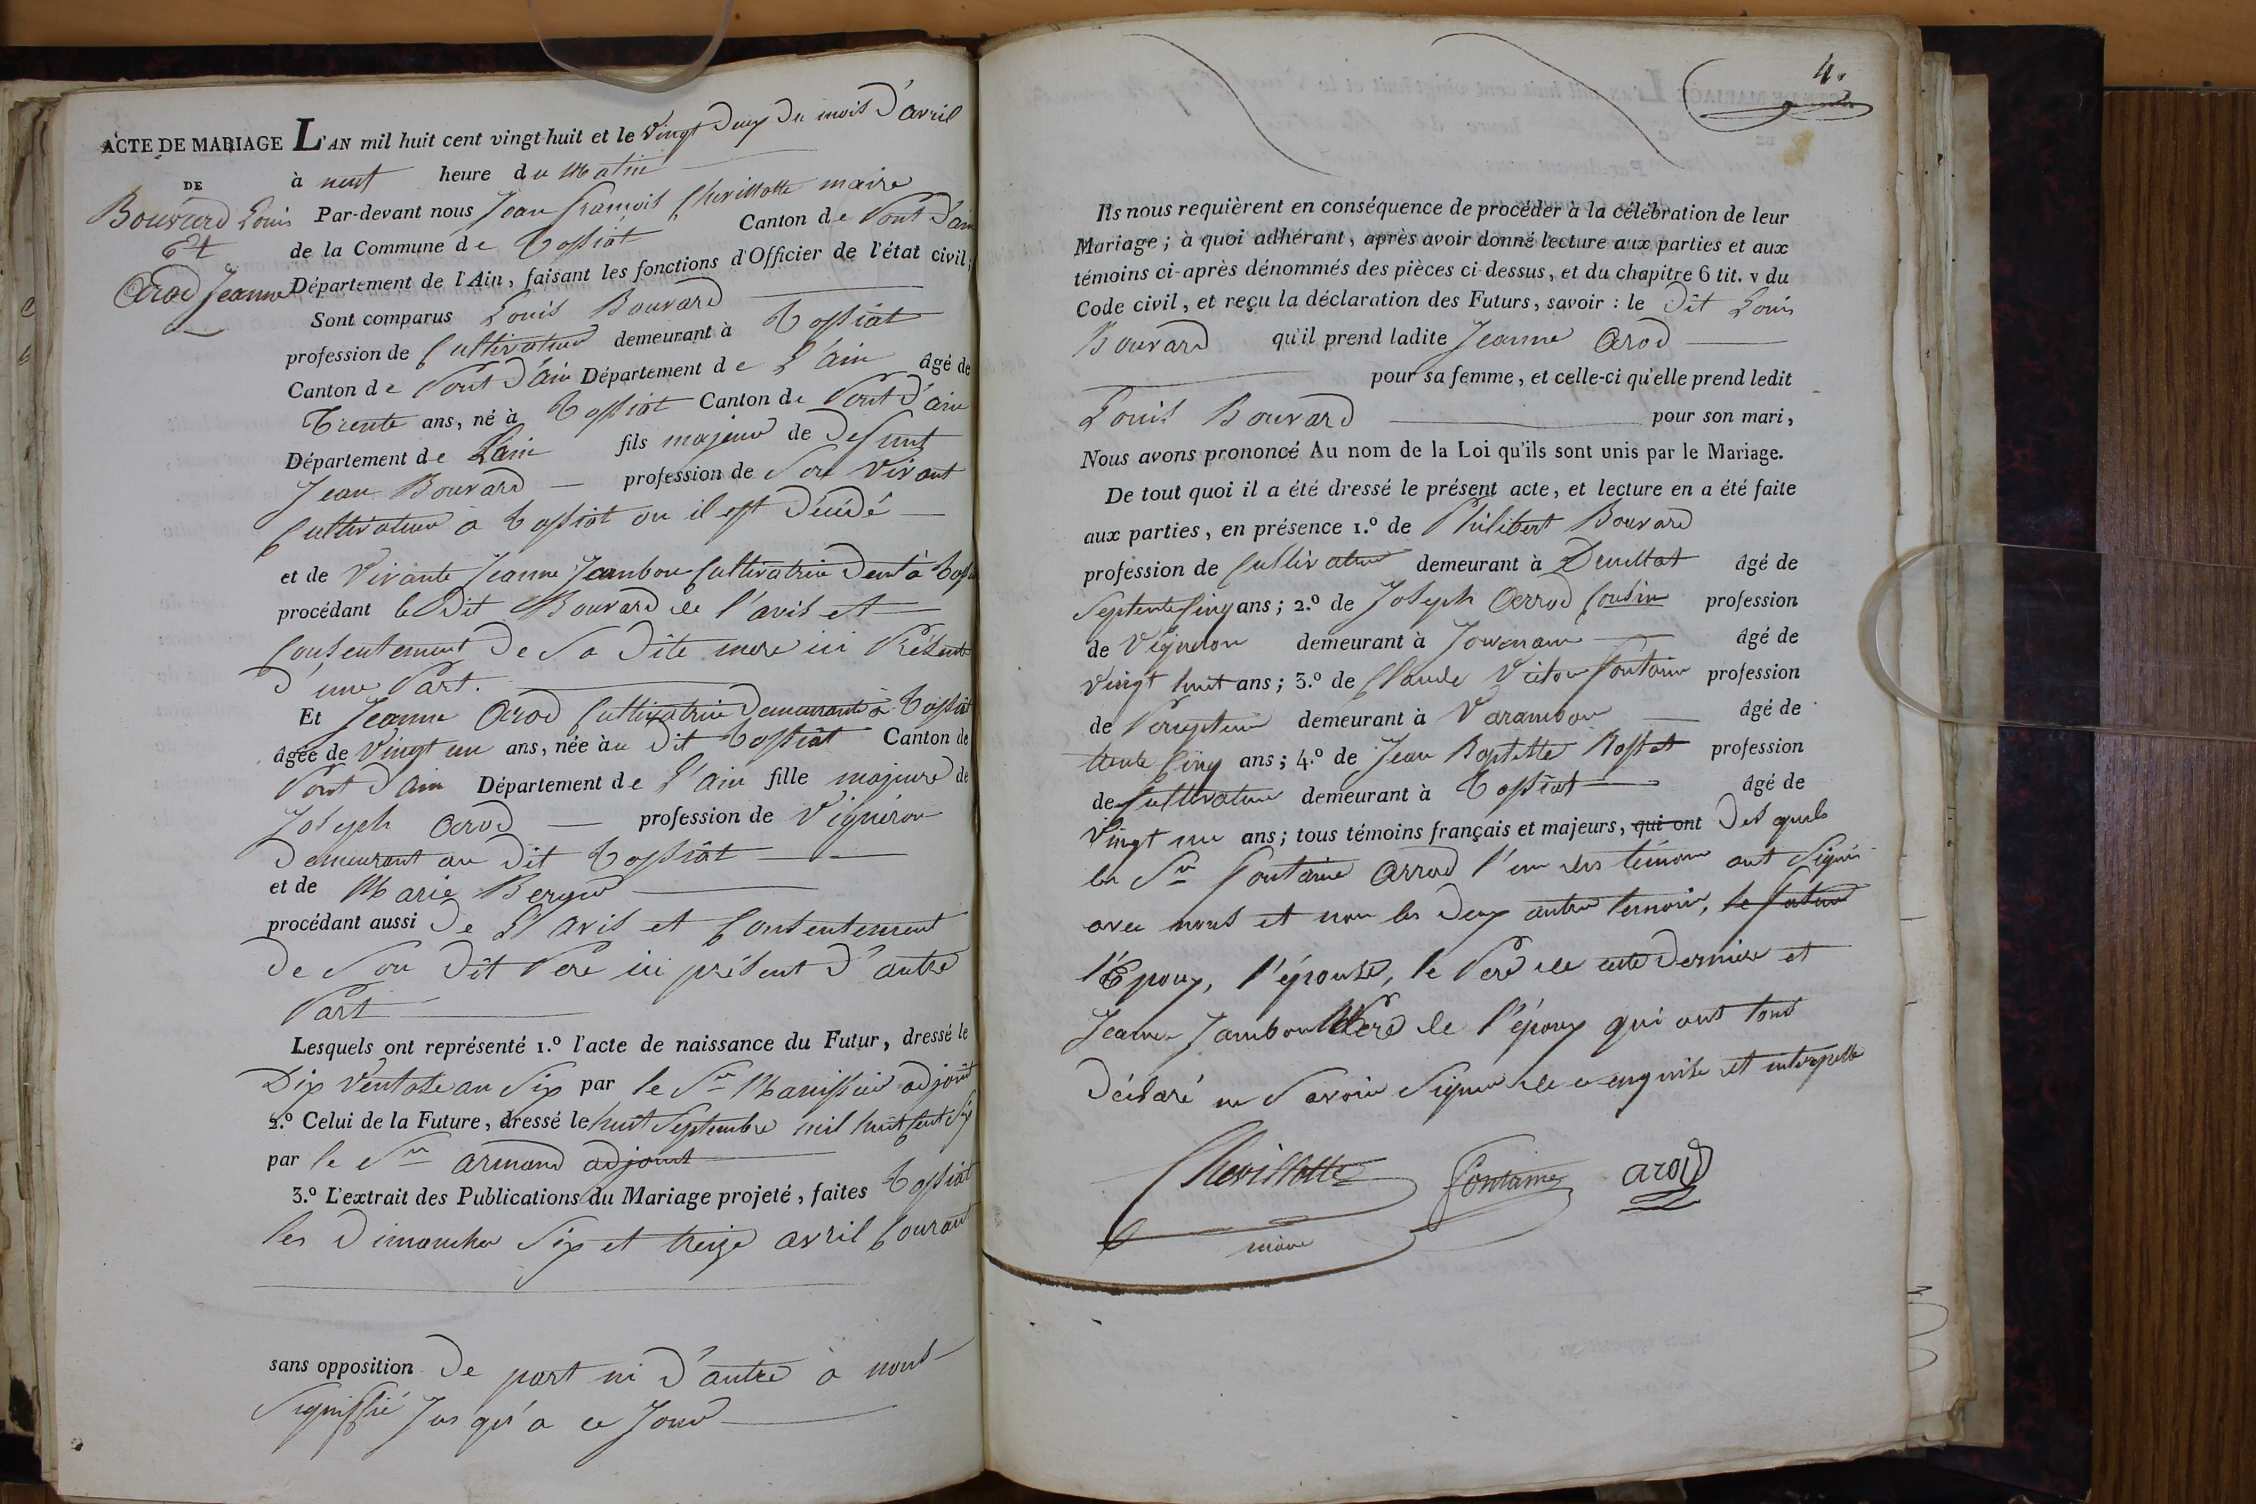 ACTE DE MARIAGE
DE
Bouvard Louis
Et
Arod Jeanne
L'AN mil huit cent vingt-huit et le vingt deux du mois d'avril
à neuf heure du matin
Par-devant nous Jean françois Chevillotte maire
de la Commune de Tossiat Canton de Pont d'ain
Département de l'Ain, faisant les fonctions d'Officier de l'état civil;
Sont comparus Louis Bouvard
profession de Cultivateur demeurant à Tossiat
Canton de Pont d'ain Département de L'ain âgé de
Trente ans, né à Tossiat Canton de Pont d'ain
Département de Lain fils majeur de defunt
Jean Bouvard profession de Son vivant
Cultivateur à Tossiat ou il est décédé
et de vivante Jeanne Jambon Cultivatrice demt à Tossiat
procédant le dit Bouvard de l'avis et
Consentement de Sa dite mere ici Présente
d'une Part.
Et Jeanne Arod Cultivatrice demeurante à Tossiat
âgée de vingt un ans, née au dit Tossiat Canton de
Pont d'ain Département de L'ain fille majeure de
Joseph Arod profession de vigneron
demeurant au dit Tossiat
et de Marie
procédant aussi de L'avis et Consentement
de Son dit Pere ici présent d'autre
Part
Lesquels ont représenté 1.º l'acte de naissance du Futur, dressé le
Dix ventose an Six par le Sr adjoint
2.º Celui de la Future, dressé le huit Septembre mil huit Cent Six
par le Sr armand adjoint
3.º L'extrait des Publications du Mariage projeté, faites Tossiat
les dimanches Six et treize avril Courant
sans opposition de part ni d'autre à nous
Signiffié Jusqu'a ce Jour
4.
Ils nous requièrent en conséquence de procéder à la célébration de leur
Mariage; à quoi adhérant, après avoir donné lecture aux parties et aux
témoins ci-après dénommés des pièces ci-dessus, et du chapitre 6 tit. v du
Code civil, et reçu la déclaration des Futurs, savoir: le dit Louis
Bouvard qu'il prend ladite Jeanne Arod
pour sa femme, et celle-ci qu'elle prend ledit
Louis Bouvard pour son mari,
Nous avons prononcé Au nom de la Loi qu'ils sont unis par le Mariage.
De tout quoi il a été dressé le présent acte, et lecture en a été faite
aux parties, en présence 1.º de Philibert Bouvard
profession de Cultivateur demeurant à Druillat âgé de
Septente Cinq ans; 2.º de Joseph Arrod Cousin profession
de vigneron demeurant à Journan âgé de
vingt huit ans; 3.º de Claude victor Fontaine profession
de Percepteur demeurant à Varambon âgé de
trente Cinq ans; 4.º de Jean Baptiste Rosset profession
de Cultivateur demeurant à Tossiat âgé de
vingt un ans; tous témoins français et majeurs, qui ont Des quels
les Sr Fontaine Arrod l'un des témoins ont Signés
avec nous et non les deux autres temoins, le futur
l'Epoux, l'épouse, le Pere de cette derniere et
Jeanne Jambon Mere de l'époux qui ont tous
déclaré ne Savoir Signer de ce enquise et interpellé
Chevillotte Fontaine arod
maire